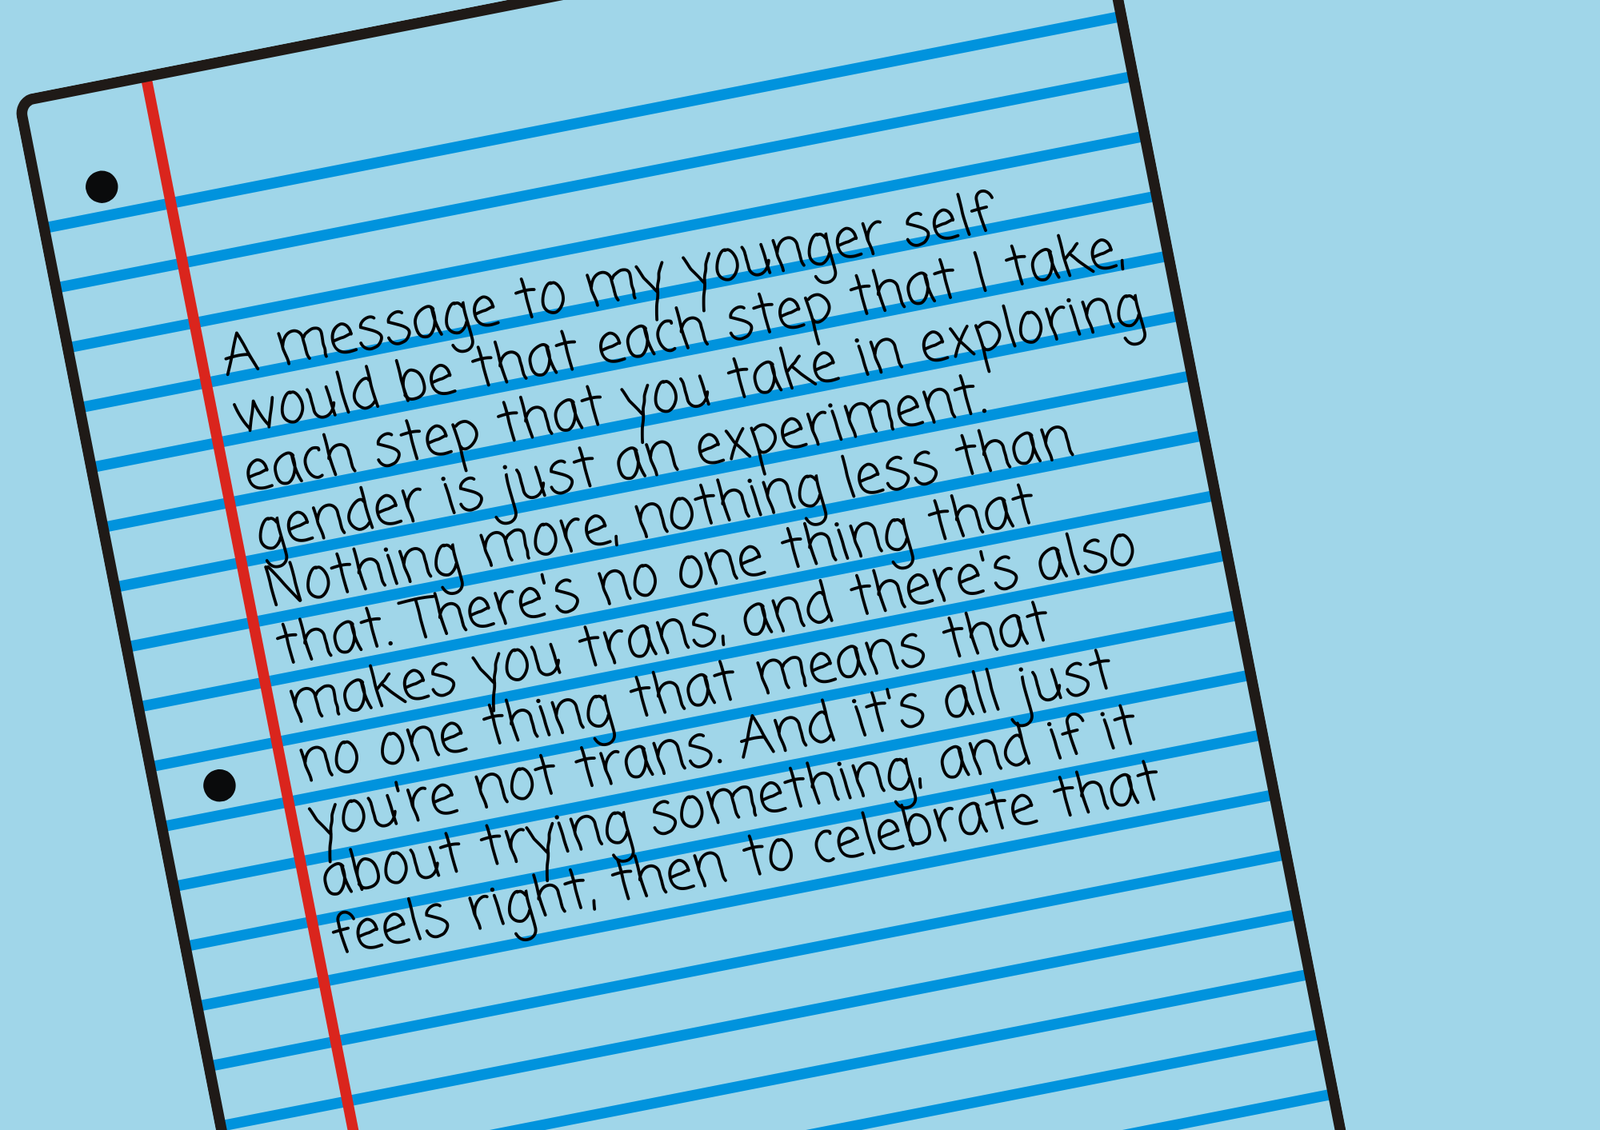 A message to my younger self
would be that each step that I take,
each step that you take in exploring
gender is just an experiment.
Nothing more, nothing less than
that. There's no one thing that
makes you trans, and there's also
no one thing that means that
you're not trans. And it's all just
about trying something, and if it
feels right, then to celebrate that